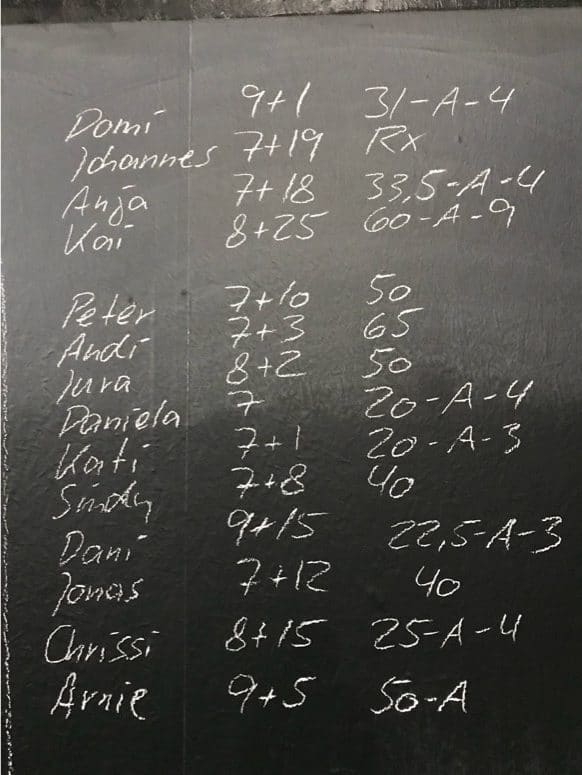 Domi 9+1 31-A-4
Johannes 7+19 Rx
Anja 7+18 33,5-A-4
Kai 8+25 60-A-9
Peter 7+10 50
Andi 7+3 65
Jura 8+2 50
Daniela 7 20-A-4
Kati 7+1 20-A-3
Sindy 7+8 40
Dani 9+15 22,5-A-3
Jonas 7+12 40
Chrissi 8+15 25-A-4
Arnie 9+5 50-A